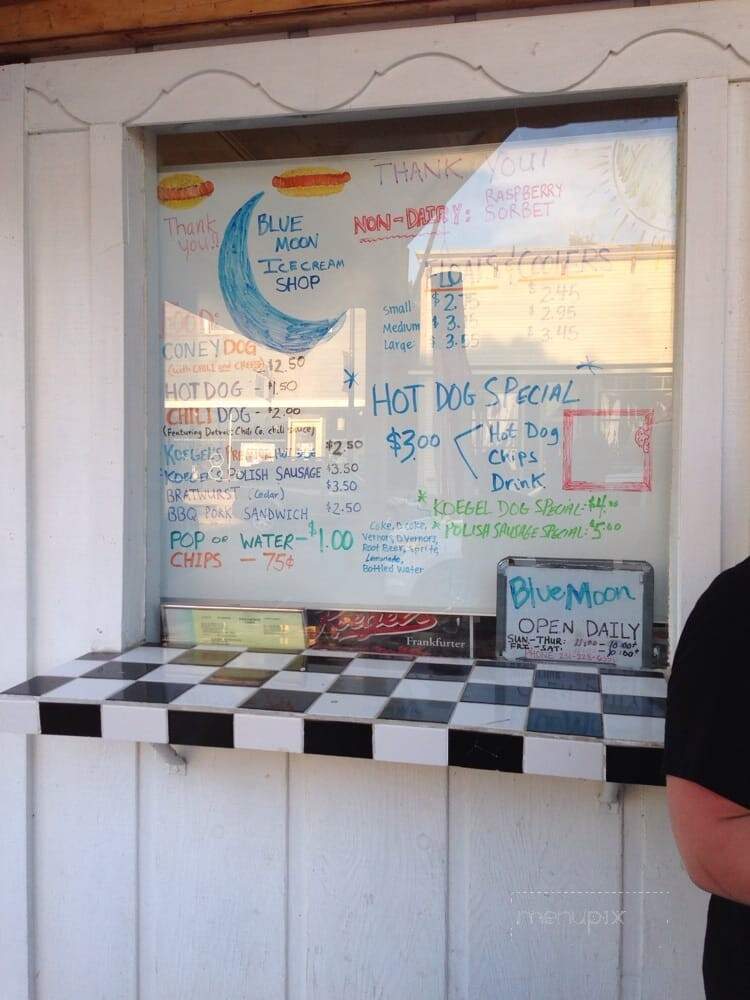 THANK YOU!
Thank you!!
BLUE
MOON
ICE CREAM
SHOP
NON-DAIRY: RASPBERRY
SORBET
Small $2.
$2.45
Medium $3.
$2.95
Large 3.
$3.45
FOOD:
CONEY DOG
(with CHILI and CHEESE) $2.50
HOT DOG - $1.50
CHILI DOG - $2.00
(Featuring Detroit Chili Co. chili sauce)
KOEGEL'S $2.50
KOEGEL'S POLISH SAUSAGE $3.50
BRATWURST $3.50
BBQ PORK SANDWICH $2.50
POP or WATER - $1.00
CHIPS - 75¢
Coke, D. Coke,
Vernors, D. Vernors,
Root Beer, Sprite,
Lemonade,
Bottled Water
HOT DOG SPECIAL
$3.00
Hot Dog
Chips
Drink
* KOEGEL DOG SPECIAL:
* POLISH SAUSAGE SPECIAL: $5.00
Koegel's
Frankfurter
Blue Moon
OPEN DAILY
SUN-THUR:
FRI.-SAT:
menupix